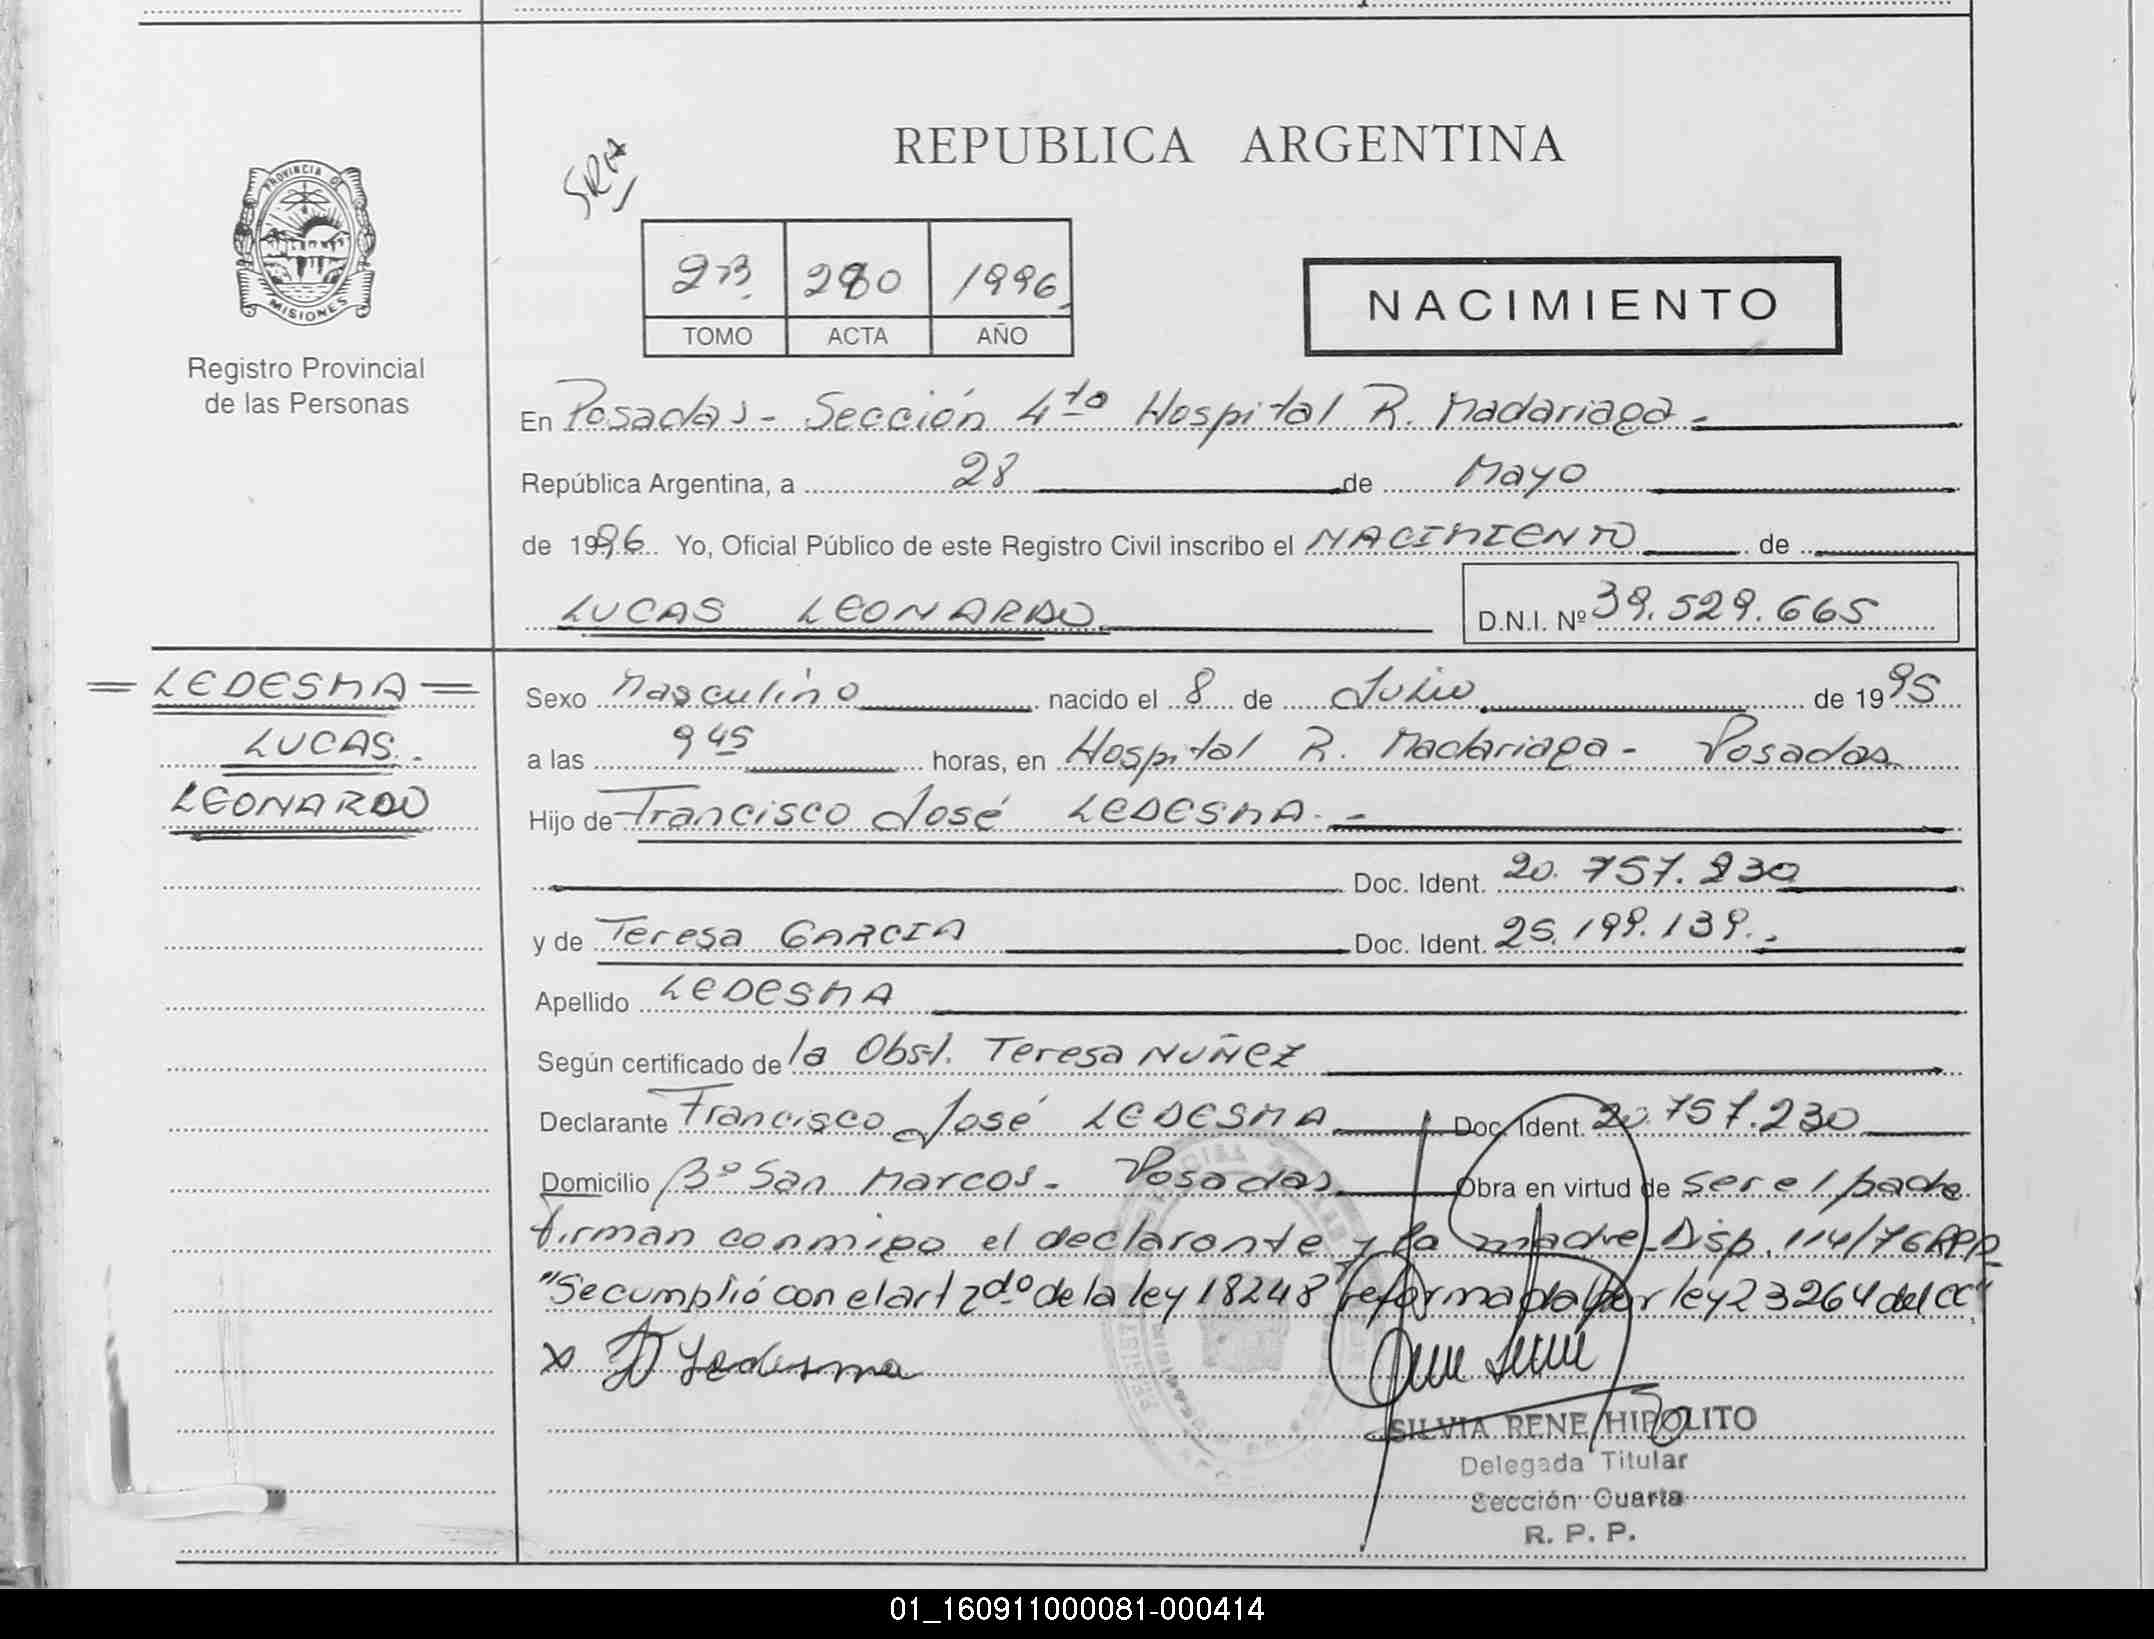 REPUBLICA ARGENTINA
PROVINCIA DE
MISIONES
Registro Provincial
de las Personas
2B. 280 1996.
TOMO ACTA AÑO
NACIMIENTO
En Posadas - Sección 4ta Hospital R. Madariaga.
República Argentina, a 28 de Mayo
de 1996 Yo, Oficial Público de este Registro Civil inscribo el NACIMIENTO de
LUCAS LEONARDO D.N.I. Nº 39.529.665
= LEDESMA =
LUCAS.
LEONARDO
Sexo Masculino nacido el 8 de Julio de 1995
a las 9 45 horas, en Hospital R. Madariaga - Posadas
Hijo de Francisco José LEDESMA. -
Doc. Ident. 20.757.230
y de Teresa GARCIA Doc. Ident. 25.199.139.
Apellido LEDESMA
Según certificado de la Obst. Teresa NUÑEZ
Declarante Francisco José LEDESMA Doc. Ident. 20.757.230
Domicilio Bº San Marcos - Posadas Obra en virtud de ser el padre
firman conmigo el declarante y la madre - Disp. 114/76 RPP-
"Se cumplió con el art 2do de la ley 18248 reformada por ley 23264 del CC"
x Ledesma
SILVIA RENE HIPOLITO
Delegada Titular
Sección Cuarta
R. P. P.
01_160911000081-000414